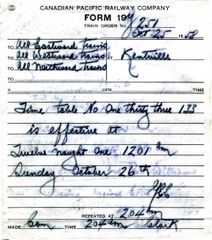 CANADIAN PACIFIC RAILWAY COMPANY
FORM 199
TRAIN ORDER NO. 251
Oct 25 1958
To All Eastward trains Kentville
To All Westward trains
To All Northward trains
X OPR.
CPR TIME
Time table No One thirty three 133
is effective at
Twelve naught one 1201 am
Sunday October 26th
REPEATED AT 204
Made Com 204 Clark